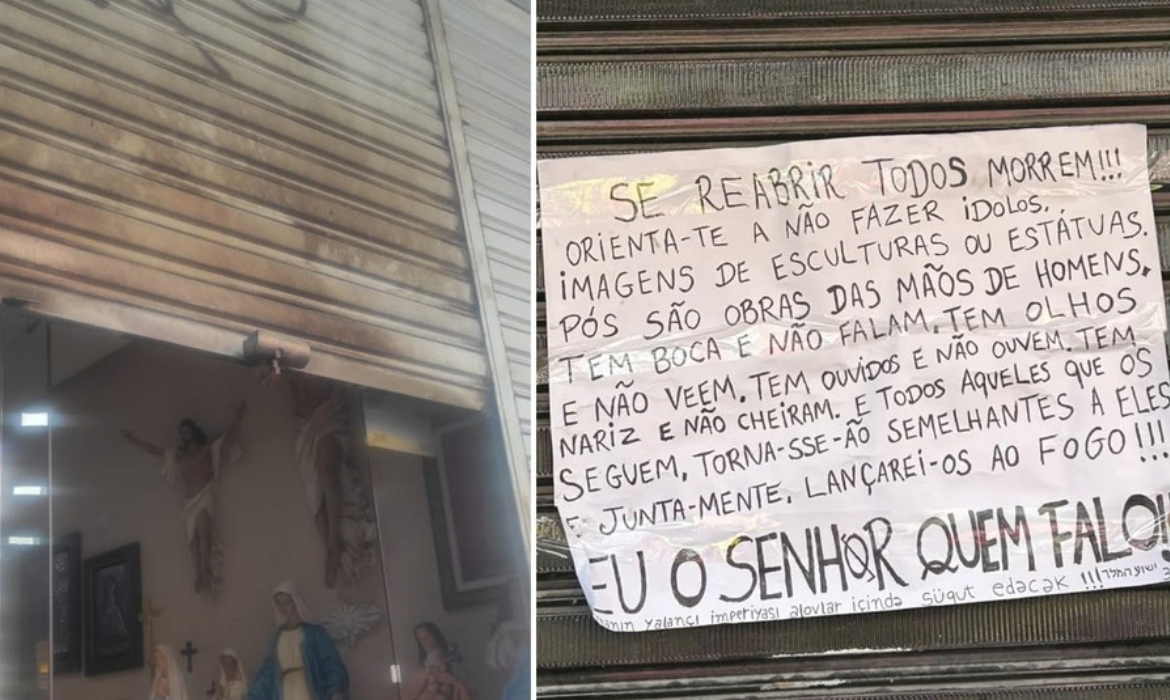 SE REABRIR TODOS MORREM!!!
ORIENTA-TE A NÃO FAZER iDOLOS,
iMAGENS DE ESCULTURAS OU ESTÁTUAS.
PÓS SÃO OBRAS DAS MÃOS DE HOMENS,
TEM BOCA E NÃO FALAM, TEM OLHOS
E NÃO VEEM, TEM OUVIDOS E NÃO OUVEM. TEM
NARIZ E NÃO CHEIRAM. E TODOS AQUELES QUE OS
SEGUEM, TORNA-SSE-ÃO SEMELHANTES A ELES
E JUNTA-MENTE. LANÇAREI-OS AO FOGO!!!
EU O SENHOR QUEM FALO!
yalançı imperiyası alovlar içində süqut edəcək !!!